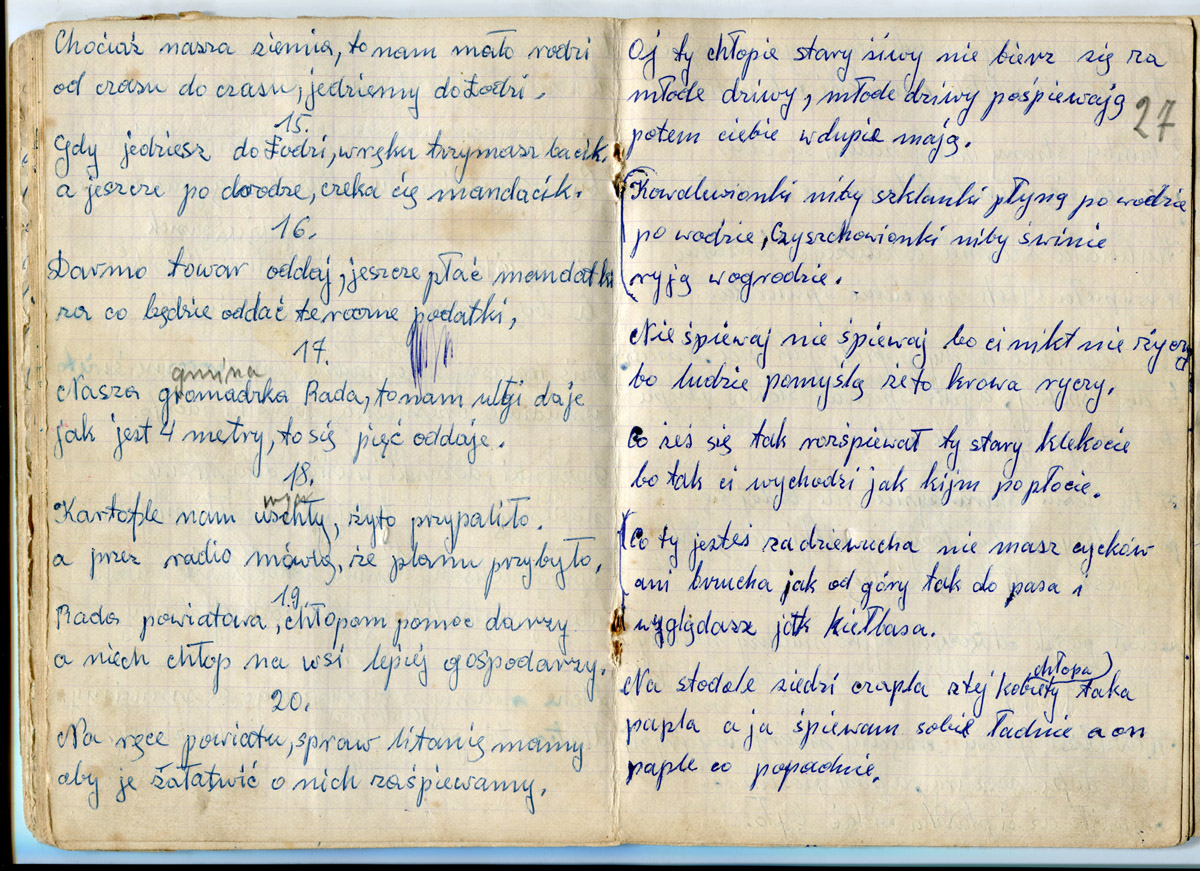 Chociaż nasza ziemia, to nam mało rodzi
od czasu do czasu, jedziemy do Łodzi.
15.
Gdy jedziesz do Łodzi, w ręku trzymasz bacik,
a jeszcze po drodze, czeka cię mandacik.
16.
Darmo towar oddaj, jeszcze płać mandatki
za co będzie oddać te roczne podatki,
17.
gmina
Nasza gromadzka Rada, to nam ulgi daje
jak jest 4 metry, to się pięć oddaje.
18.
Kartofle nam uschły, żyto przypaliło.
a przez radio mówię, że planu przybyło,
19
Rada powiatowa, chłopom pomoc darzy
a niech chłop na wsi lepiej gospodarzy.
20.
Na ręce powiatu, spraw litanię mamy
aby je załatwić o nich zaśpiewamy.
27
Oj ty chłopie stary siwy nie bierz się za
młode dziwy, młode dziwy pośpiewają
potem ciebie w dupie mają.
Kowaluwionki niby szklanki płyną po wodzie
po wodzie, Czyszchowionki niby świnie
ryją w ogrodzie.
Nie śpiewaj nie śpiewaj bo ci nikt nie życzy
bo ludzie pomyślą że to krowa ryczy.
Co żeś się tak rozśpiewał ty stary klekocie
bo tak ci wychodzi jak kijm po płocie.
Co ty jesteś za dziewucha nie masz cycków
ani brzucha jak od góry tak do pasa i
wyglądasz jak kiełbasa.
chłopa
Na stodole siedzi czapla z tej kobiety taka
papla a ja śpiewam sobie ładnie a on
paple co popadnie.